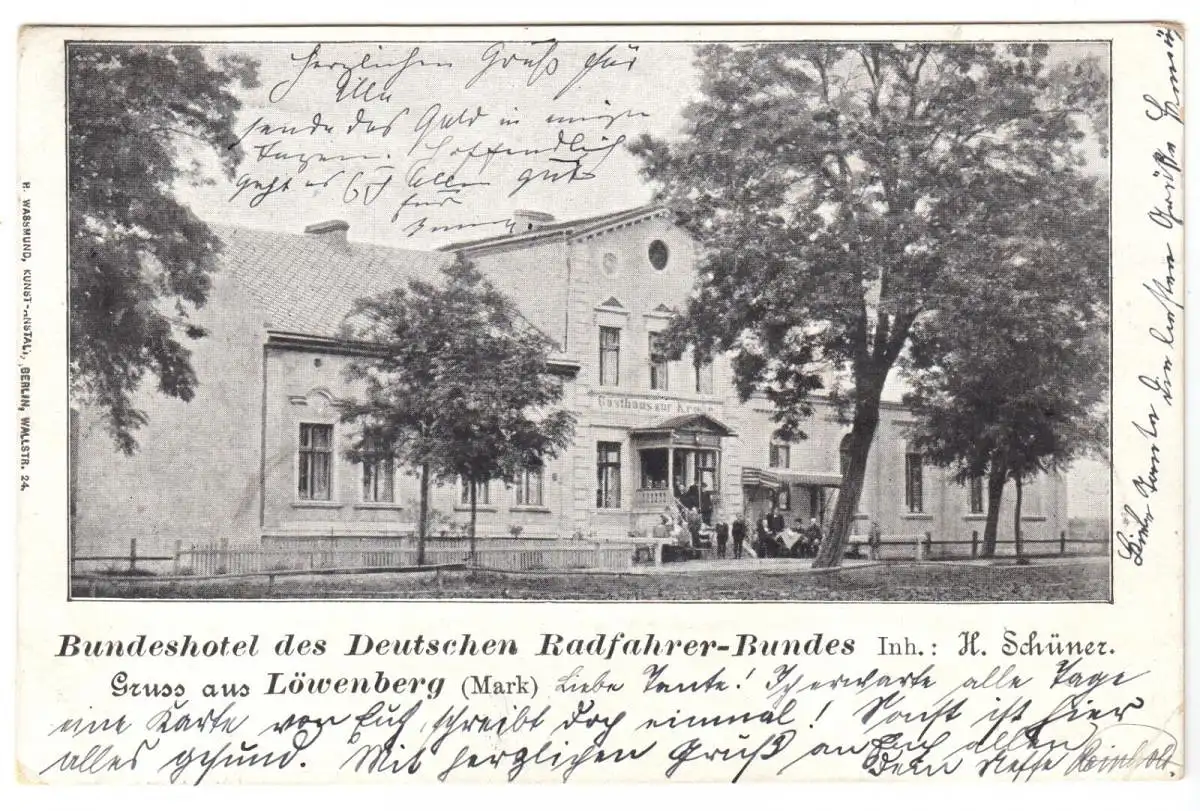 Herzlichen Gruß für
Alle
sende das Geld in einigen
Tagen. Hoffendlich
geht es Euch Allen gut
H. WASSMUND, KUNST-ANSTALT, BERLIN, WALLSTR. 24.
Gasthaus zur Krone
Liebe Tante die besten Grüße
Bundeshotel des Deutschen Radfahrer-Bundes Inh.: H. Schüner.
Gruss aus Löwenberg (Mark) Liebe Tante! Ich erwarte alle Tage
eine Karte von Euch, schreibt doch einmal! Sonst ist hier
alles gesund. Mit herzlichen Gruß an Euch allen
Dein Neffe Reinhold.